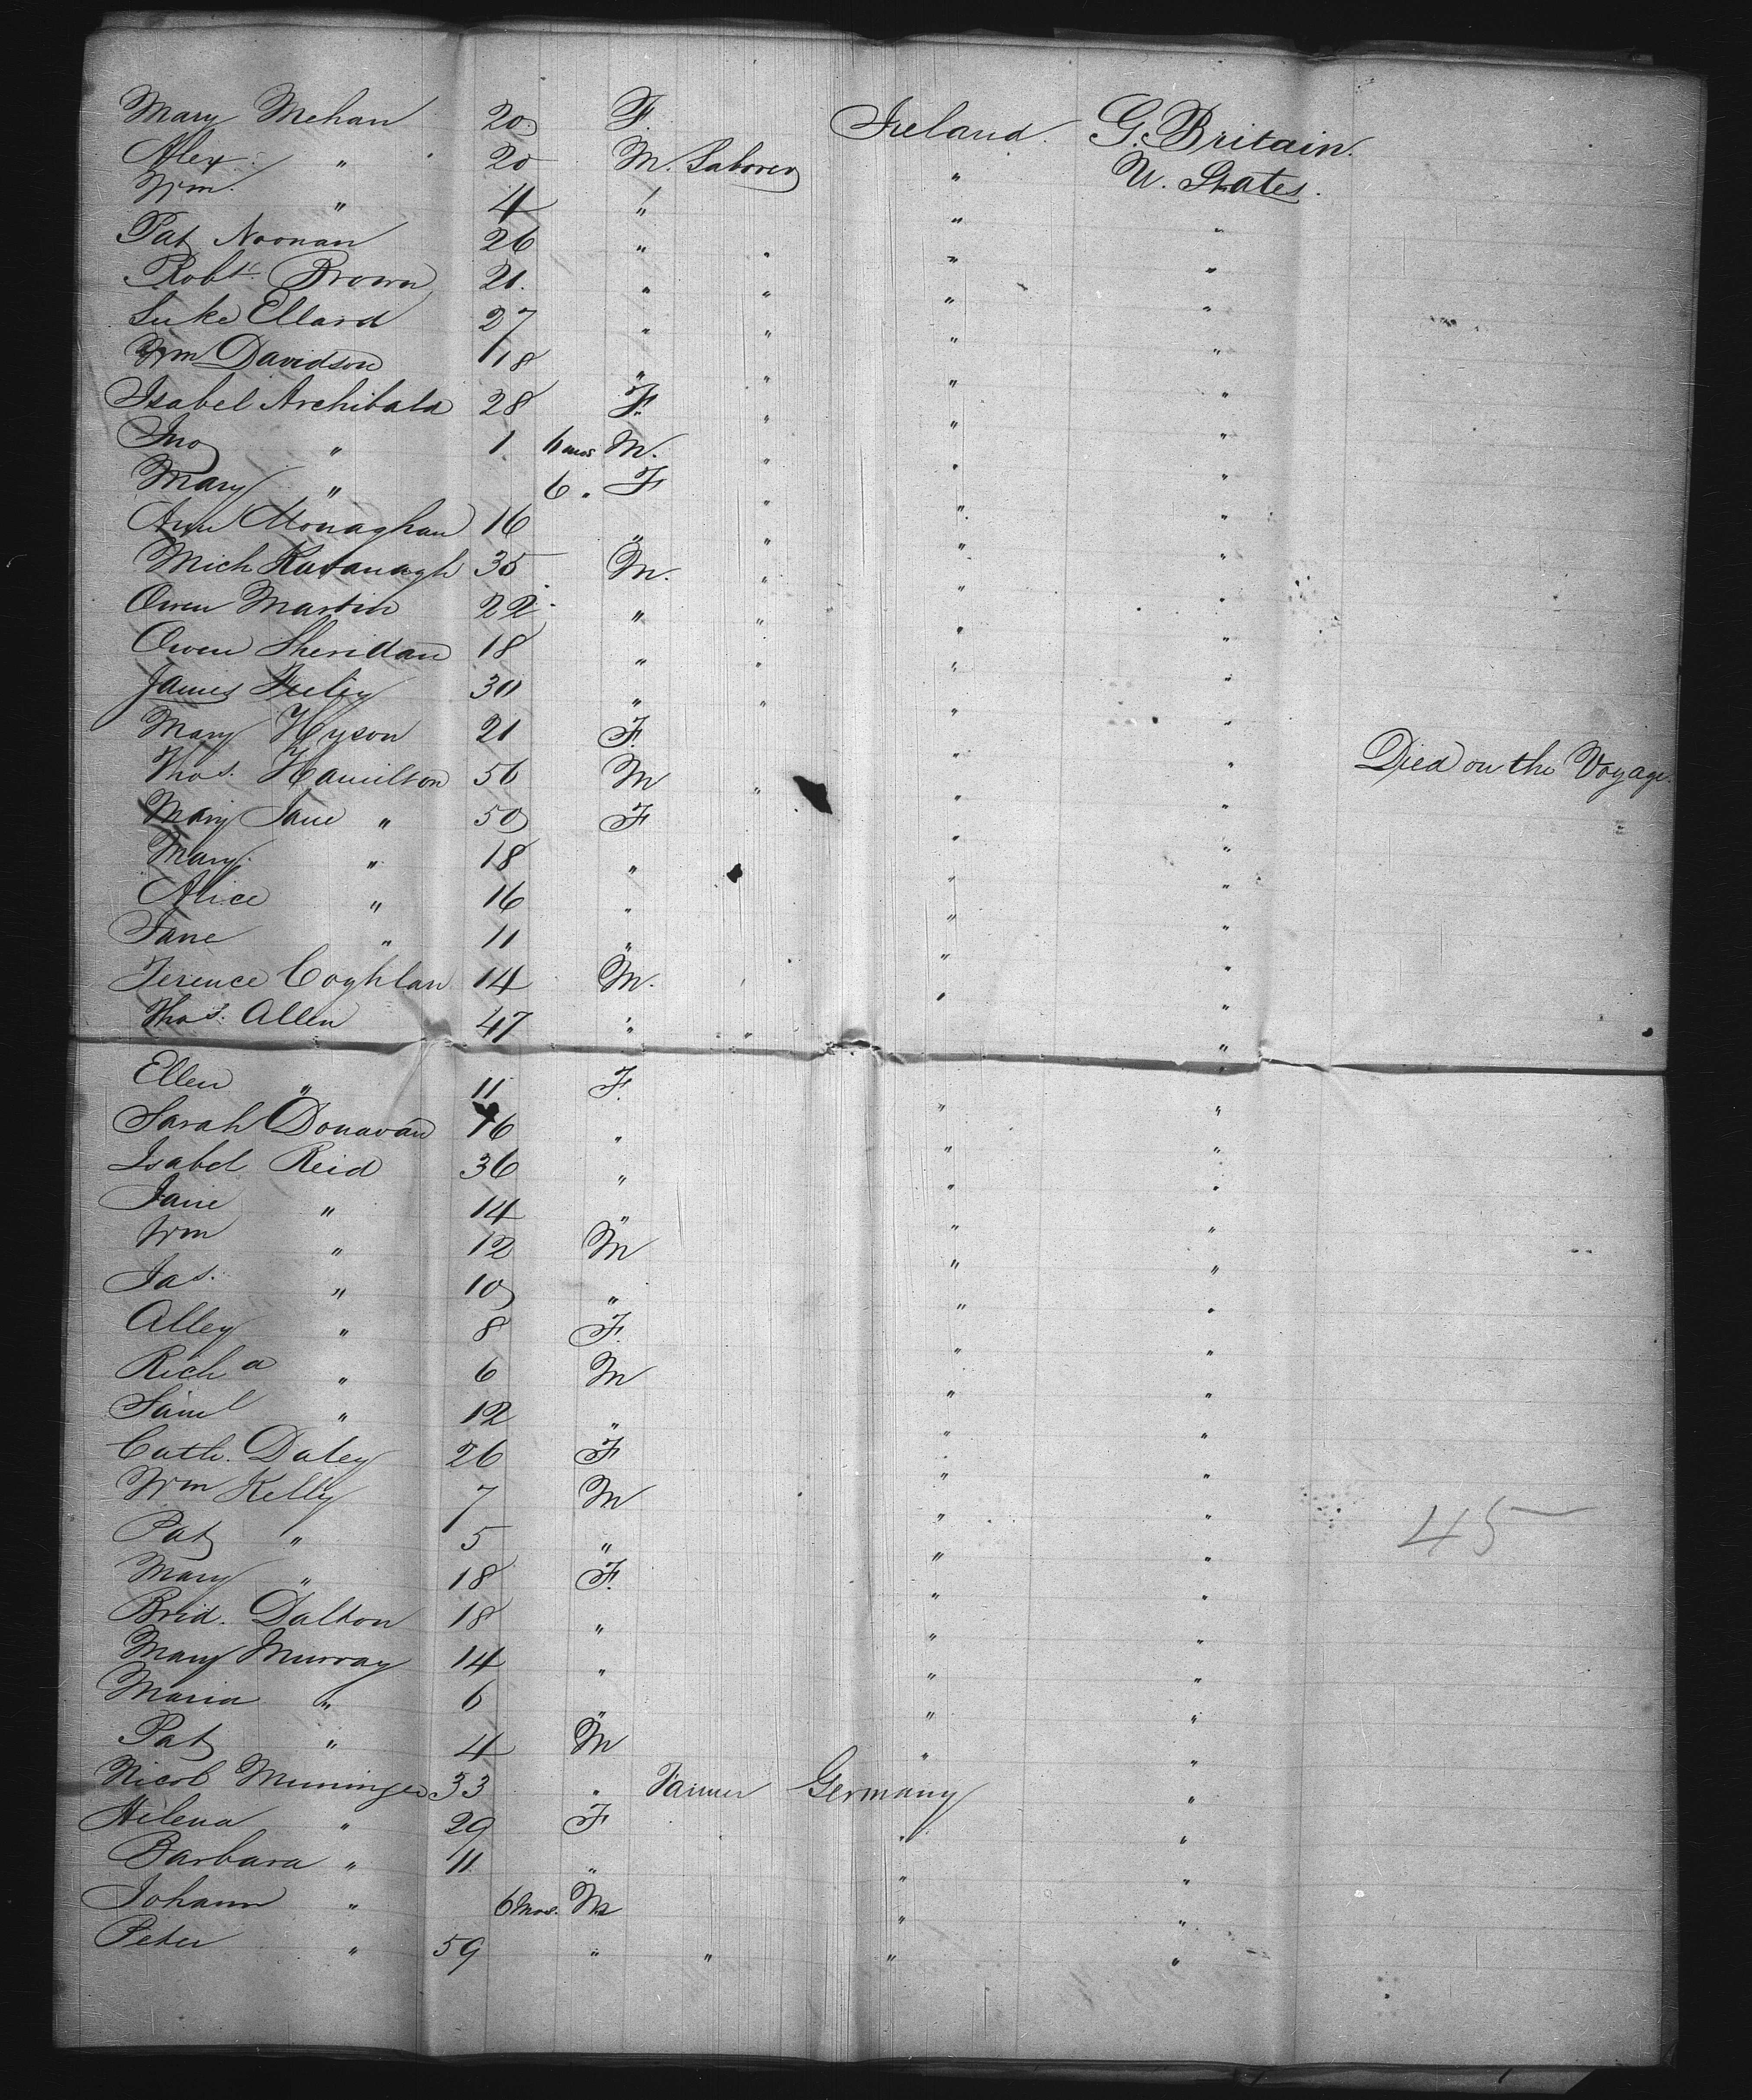 Mary Mehan 20 F. Ireland. G. Britain.
Alex. " 20 M. Laborer " U. States.
Wm. " 4 " " "
Pat Noonan 26 " " " "
Robt. Brown 21. " " " "
Luke Ellard 27 " " " "
Wm Davidson 18 " " " "
Isabel Archibald 28 F. " " "
Jno " 1. 6 mos M. " " "
Mary " 6 " F " " "
Ann Monaghan 16 " " " "
Mich Kavanagh 35 M. " " "
Owen Martin 22 " " " "
Owen Sheridan 18 " " " "
James 30 " " " "
Mary Hyson 21 F. " "
Thos. Hamilton 56 M " " " Died on the Voyage.
Mary Jane " 50 F " "
Mary " 18 " " "
Alice " 16 " " "
Jane " 11 " " "
Terence Coghlan 14 M. " " "
Thos. Allen 47 " " "
Ellen " 11 F. " "
Sarah Donavan 16 " " "
Isabel Reid 36 " " "
Jane " 14 " " "
Wm " 12 M " "
Jas. " 10 " " "
Alley " 8 F. " "
Richd " 6 M " "
Saml " 12 " " "
Cath. Daley 26 F " "
Wm Kelly 7 M " "
Pat " 5 " " " 45
Mary " 18 F. " "
Brid. Dalton 18 " " "
Mary Murray 14 " " "
Maria " 6 " " "
Pat " 4 M " "
Nicol 33 " Farmer Germany "
Helena " 29 F " "
Barbara " 11 " " "
Johann " 6 Mos. M " "
Peter " 59 " " " "